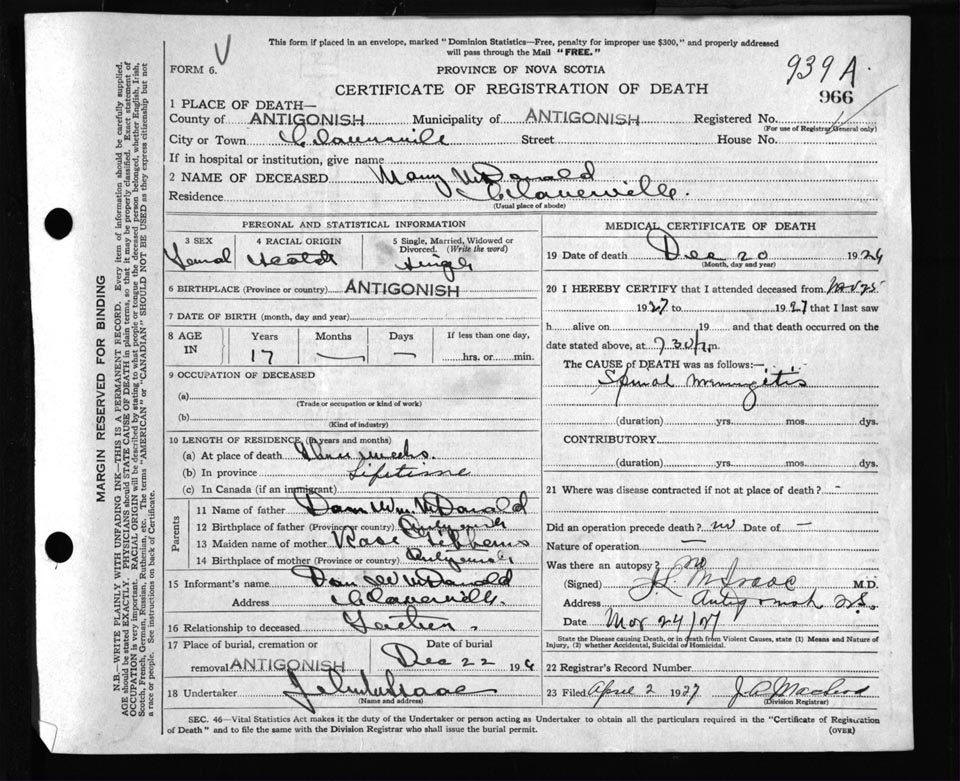 This form if placed in an envelope, marked "Dominion Statistics—Free, penalty for improper use $300," and properly addressed
will pass through the Mail "FREE."
V
FORM 6.
PROVINCE OF NOVA SCOTIA
939 A.
CERTIFICATE OF REGISTRATION OF DEATH
966
1 PLACE OF DEATH—
County of ANTIGONISH Municipality of ANTIGONISH Registered No.
(For use of Registrar General only)
City or Town Claverville Street House No.
If in hospital or institution, give name
2 NAME OF DECEASED Mary McDonald
Residence Claverville.
(Usual place of abode)
PERSONAL AND STATISTICAL INFORMATION
3 SEX 4 RACIAL ORIGIN 5 Single, Married, Widowed or Divorced. (Write the word)
Femal Scotch Single
6 BIRTHPLACE (Province or country) ANTIGONISH
7 DATE OF BIRTH (month, day and year)
8 AGE IN Years Months Days If less than one day,
17 — — hrs. or min.
9 OCCUPATION OF DECEASED
(a)
(Trade or occupation or kind of work)
(b)
(Kind of industry)
10 LENGTH OF RESIDENCE (in years and months)
(a) At place of death weeks.
(b) In province Lifetime
(c) In Canada (if an immigrant)
Parents
11 Name of father Dan Wm. McDonald
12 Birthplace of father (Province or country)
13 Maiden name of mother Rose
14 Birthplace of mother (Province or country)
15 Informant's name Dan W McDonald
Address Claverville.
16 Relationship to deceased
17 Place of burial, cremation or removal ANTIGONISH
Date of burial
Dec 22 19
18 Undertaker
(Name and address)
MEDICAL CERTIFICATE OF DEATH
19 Date of death Dec 20 1926
(Month, day and year)
20 I HEREBY CERTIFY that I attended deceased from
1927 to 1927 that I last saw
h alive on 19 and that death occurred on the
date stated above, at 7 30 m.
The CAUSE OF DEATH was as follows:—
Spinal meningitis
(duration) yrs. mos. dys.
CONTRIBUTORY
(duration) yrs. mos. dys.
21 Where was disease contracted if not at place of death? -
Did an operation precede death? no Date of —
Nature of operation —
Was there an autopsy? no
(Signed) McIsaac M.D.
Address Antigonish N.S.
Date Mar 24/27
State the Disease causing Death, or in death from Violent Causes, state (1) Means and Nature of
Injury, (2) whether Accidental, Suicidal or Homicidal.
22 Registrar's Record Number
23 Filed April 2 1927 J.A. MacLeod
(Division Registrar)
SEC. 46—Vital Statistics Act makes it the duty of the Undertaker or person acting as Undertaker to obtain all the particulars required in the "Certificate of Registration
of Death" and to file the same with the Division Registrar who shall issue the burial permit.
(OVER)
MARGIN RESERVED FOR BINDING
N.B.—WRITE PLAINLY WITH UNFADING INK—THIS IS A PERMANENT RECORD. Every item of information should be carefully supplied.
AGE should be stated EXACTLY. PHYSICIANS should STATE CAUSE OF DEATH in plain terms, so that it may be properly classified. Exact statement of
OCCUPATION is very important. RACIAL ORIGIN will be described by stating to what people or tongue the deceased person belonged, whether English, Irish,
Scotch, French, German, Russian, Ruthenian, etc. The terms "AMERICAN" or "CANADIAN" SHOULD NOT BE USED as they express citizenship but not
a race or people. See instructions on back of Certificate.